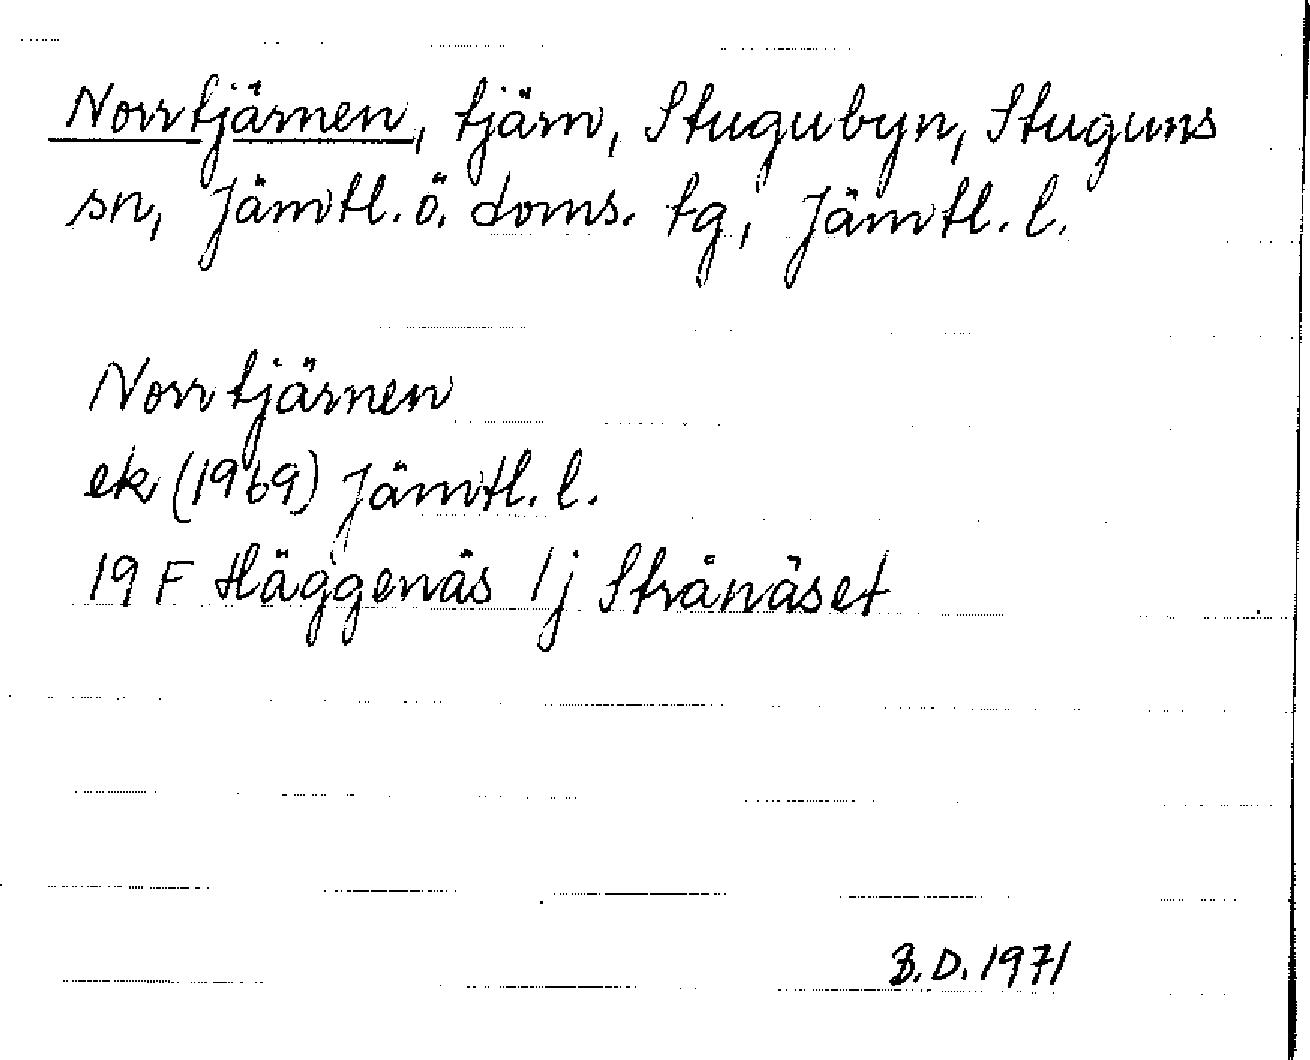 Norrtjärnen, tjärn, Stugubyn, Stuguns
sn, Jämtl. ö. doms. tg, Jämtl. l.
Norrtjärnen
ek (1969) Jämtl. l.
19 F Häggenås 1j Strånäset
B.D. 1971